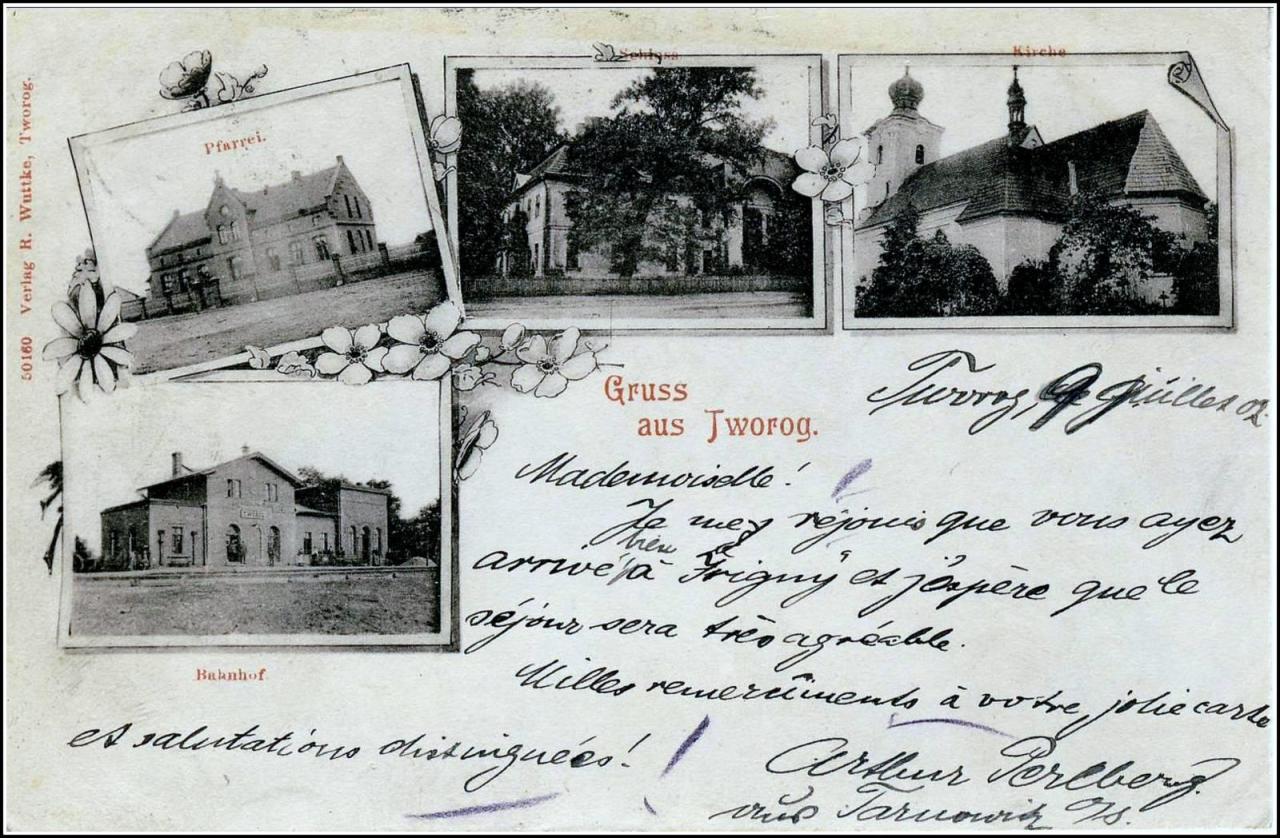 50160 Verlag R. Wuttke, Tworog.
Pfarrei.
Schloss
Kirche
Gruss
aus Tworog.
Bahnhof
Tworog, 9 juillet 02.
Mademoiselle!
Je me réjouis que vous ayez
bien
arrivé à Irigny et j'espère que le
séjour sera très agréable.
Milles remercîments à votre jolie carte
et salutations distinguées!
Arthur Perlberg.
aus Tarnowitz O/S.